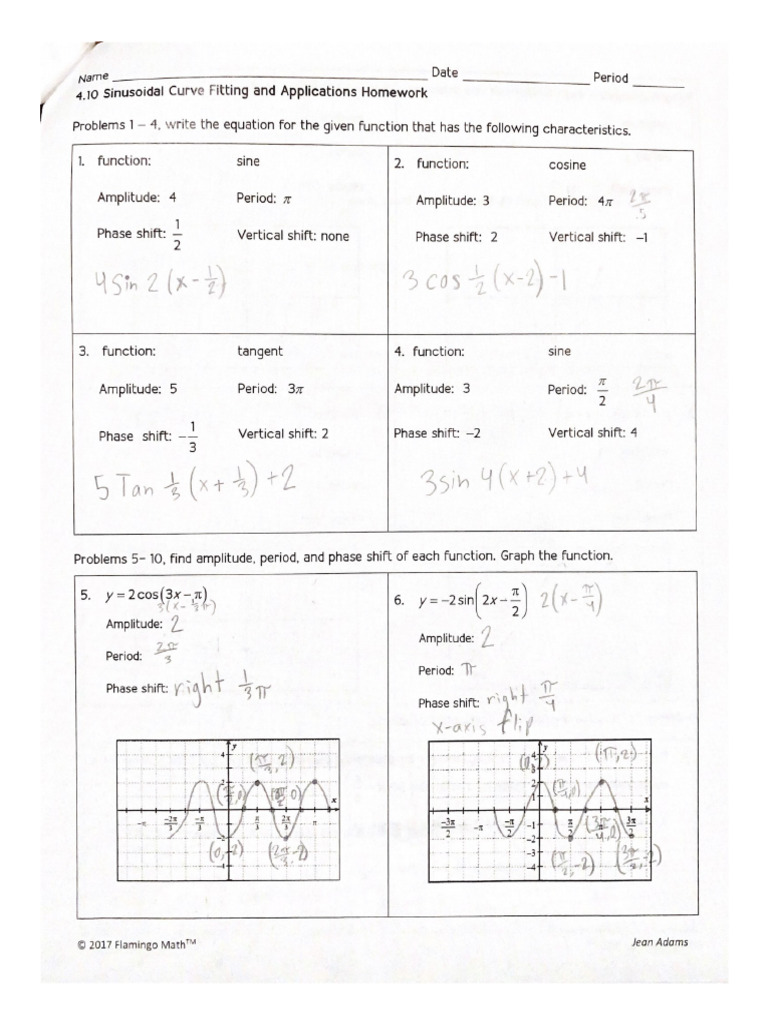 Name ____________ Date ____________ Period ______
4.10 Sinusoidal Curve Fitting and Applications Homework
Problems 1 – 4, write the equation for the given function that has the following characteristics.
1. function: sine
Amplitude: 4 Period: π
Phase shift: 1/2 Vertical shift: none
4 Sin 2 (x - 1/2)
2. function: cosine
Amplitude: 3 Period: 4π 2π/.5
Phase shift: 2 Vertical shift: –1
3 cos 1/2 (x-2) -1
3. function: tangent
Amplitude: 5 Period: 3π
Phase shift: –1/3 Vertical shift: 2
5 Tan 1/3 (x + 1/3) +2
4. function: sine
Amplitude: 3 Period: π/2 2π/4
Phase shift: –2 Vertical shift: 4
3sin 4(x+2)+4
Problems 5- 10, find amplitude, period, and phase shift of each function. Graph the function.
5. y = 2cos(3x – π)
3(x - 1/3 π)
Amplitude: 2
Period: 2π/3
Phase shift: right 1/3 π
y
4
(π/3, 2)
2
x
-π -2π/3 -π/3 π/3 2π/3 π
-2
(0, -2) (2π/3, -2)
-4
6. y = –2sin(2x – π/2) 2(x - π/4)
Amplitude: 2
Period: π
Phase shift: right π/4
x-axis flip
y
4
3
2
1
x
-3π/2 -π -π/2 π/2 3π/2
-1
(3π/4, 0)
-2
-3
(π/2, -2) (3π/2, -2)
-4
© 2017 Flamingo Math™ Jean Adams